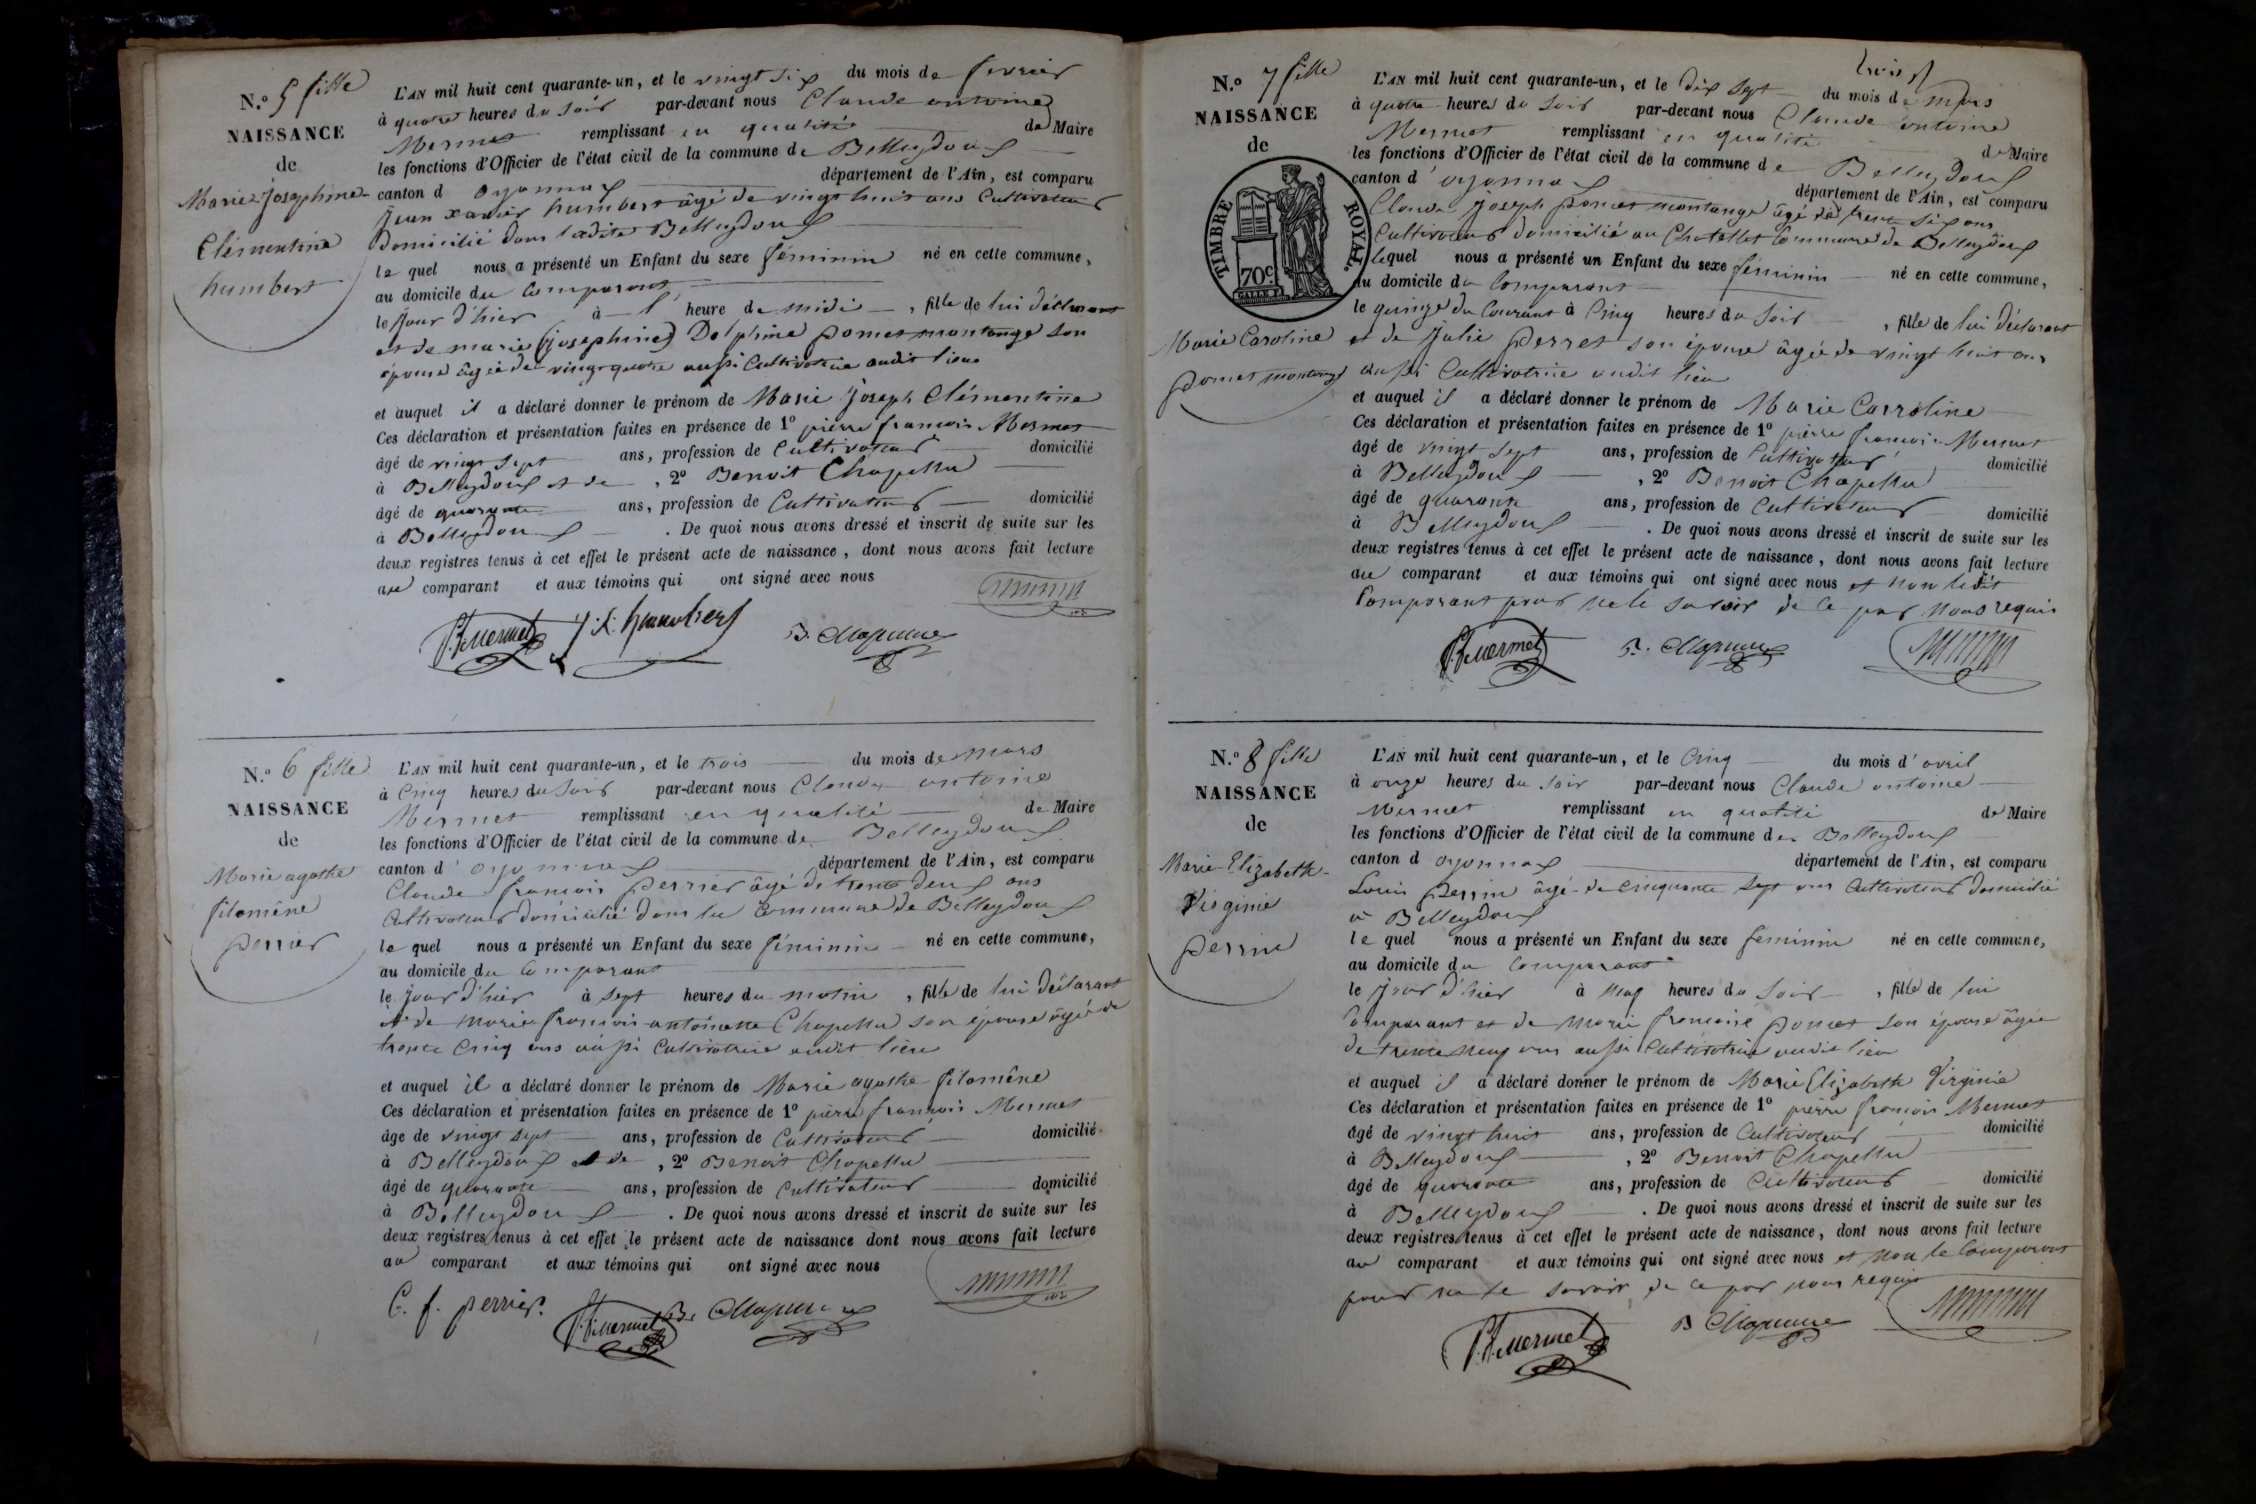 N.o 5 fille
NAISSANCE
de
Marie Joséphine
Clémentine
humbert
L'AN mil huit cent quarante-un, et le vingt six du mois de fevrier
à quatre heures du soir par-devant nous Claude antoine
Mermet remplissant en qualité de Maire
les fonctions d'Officier de l'état civil de la commune de Belleydoux
canton d oyonnax département de l'Ain, est comparu
Jean xavier humbert âgé de vingt huit ans Cultivateur
domicilié dans ladite Belleydoux
le quel nous a présenté un Enfant du sexe féminin né en cette commune,
au domicile du Comparant
le jour d'hier à l heure de midi , fille de lui déclarant
et de marie (josephine) Delphine poncet montange son
épouse âgée de vingt quatre aussi Cultivatrice audit lieu
et auquel il a déclaré donner le prénom de Marie Joseph Clémentine
Ces déclaration et présentation faites en présence de 1o pierre françois Mermet
âgé de vingt sept ans, profession de Cultivateur domicilié
à Belleydoux et de , 2o Benoit Chapellu
âgé de quarante ans, profession de Cultivateur domicilié
à Belleydoux . De quoi nous avons dressé et inscrit de suite sur les
deux registres tenus à cet effet le présent acte de naissance, dont nous avons fait lecture
au comparant et aux témoins qui ont signé avec nous
P.f. mermet J. X. humbert B. Chapellu
N.o 6 fille
NAISSANCE
de
Marie agathe
filomène
perrier
L'AN mil huit cent quarante-un, et le trois du mois de mars
à Cinq heures du soir par-devant nous Claude antoine
Mermet remplissant en qualité de Maire
les fonctions d'Officier de l'état civil de la commune de Belleydoux
canton d' oyonnax département de l'Ain, est comparu
Claude françois perrier âgé de trente deux ans
Cultivateur domicilié dans la Commune de Belleydoux
le quel nous a présenté un Enfant du sexe féminin né en cette commune,
au domicile du Comparant
le jour d'hier à sept heures du matin , fille de lui déclarant
et de marie françois antoinette Chapellu son épouse âgée de
trente Cinq ans aussi Cultivatrice audit lieu
et auquel il a déclaré donner le prénom de Marie agathe filomène
Ces déclaration et présentation faites en présence de 1o pierre françois Mermet
âge de vingt sept ans, profession de Cultivateur domicilié
à Belleydoux et de , 2o Benoit Chapellu
âgé de quarante ans, profession de Cultivateur domicilié
à Belleydoux . De quoi nous avons dressé et inscrit de suite sur les
deux registres tenus à cet effet le présent acte de naissance dont nous avons fait lecture
au comparant et aux témoins qui ont signé avec nous
C. f. perrier. P.f. mermet B. Chapellu
N.o 7 fille
NAISSANCE
de
TIMBRE ROYAL.
70c.
Marie Caroline
poncet montange
L'AN mil huit cent quarante-un, et le dix sept du mois de mars
à quatre heures du soir par-devant nous Claude antoine
Mermet remplissant en qualité de Maire
les fonctions d'Officier de l'état civil de la commune de Belleydoux
canton d' oyonnax département de l'Ain, est comparu
Claude Joseph poncet montange âgé de trente six ans
Cultivateur domicilié au Chatellet Commune de Belleydoux
lequel nous a présenté un Enfant du sexe féminin né en cette commune,
au domicile du Comparant
le quinze du Courant à Cinq heures du soir , fille de lui déclarant
et de Julie perret son épouse âgée de vingt huit ans
aussi Cultivatrice audit lieu
et auquel il a déclaré donner le prénom de Marie Carroline
Ces déclaration et présentation faites en présence de 1o pierre françois Mermet
âgé de vingt sept ans, profession de Cultivateur domicilié
à Belleydoux , 2o Benoit Chapellu
âgé de quarante ans, profession de Cultivateur domicilié
à Belleydoux . De quoi nous avons dressé et inscrit de suite sur les
deux registres tenus à cet effet le présent acte de naissance, dont nous avons fait lecture
au comparant et aux témoins qui ont signé avec nous et non ledit
Comparant pour ne le savoir de ce par nous requis
P.f. mermet B. Chapellu
N.o 8 fille
NAISSANCE
de
Marie Elizabeth
Virginie
perrin
L'AN mil huit cent quarante-un, et le Cinq du mois d'avril
à onze heures du soir par-devant nous Claude antoine
Mermet remplissant en qualité de Maire
les fonctions d'Officier de l'état civil de la commune de Belleydoux
canton d oyonnax département de l'Ain, est comparu
Louis perrin âgé de cinquante sept ans Cultivateur domicilié
à Belleydoux
le quel nous a présenté un Enfant du sexe féminin né en cette commune,
au domicile du Comparant
le jour d'hier à neuf heures du soir , fille de lui
Comparant et de marie françoise poncet son épouse âgée
de trente neuf ans aussi Cultivatrice audit lieu
et auquel il a déclaré donner le prénom de Marie Elizabeth Virginie
Ces déclaration et présentation faites en présence de 1o pierre françois Mermet
âgé de vingt huit ans, profession de Cultivateur domicilié
à Belleydoux , 2o Benoit Chapellu
âgé de quarante ans, profession de Cultivateur domicilié
à Belleydoux . De quoi nous avons dressé et inscrit de suite sur les
deux registres tenus à cet effet le présent acte de naissance, dont nous avons fait lecture
au comparant et aux témoins qui ont signé avec nous et non le Comparant
pour ne le savoir de ce par nous requis
P.f. mermet B Chapellu